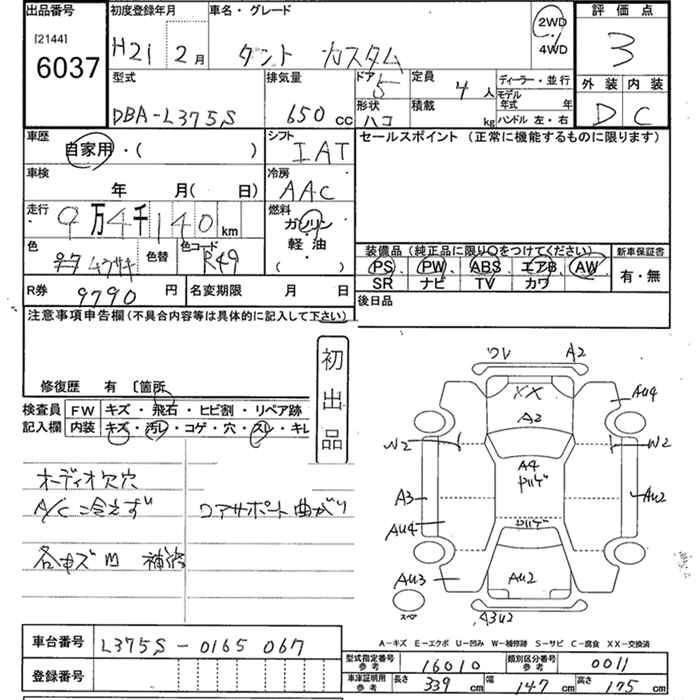 出品番号
[2144]
6037
初度登録年月
H21 2月
車名・グレード
タント カスタム
2WD
4WD
評価点
3
外装 内装
D C
型式
DBA-L375S
排気量
650 cc
ドア
5
定員
4 人
形状
ハコ
積載
kg
ディーラー・並行
モデル年式 年
ハンドル 左・右
車歴
自家用・( )
シフト
IAT
セールスポイント (正常に機能するものに限ります)
車検
年 月( 日)
冷房
AAC
走行
9万4千140km
燃料
ガソリン・
軽油
( )
色
ムラサキ
色替
色コード
R49
装備品(純正品に限り○をつけてください)
PS、PW、ABS、エアB、AW
SR ナビ TV カワ
新車保証書
有・無
R券
9790 円
名変期限 月 日
後日品
注意事項申告欄(不具合内容等は具体的に記入して下さい)
修復歴 有 〔箇所
初出品
検査員記入欄
FW キズ・飛石・ヒビ割・リペア跡
内装 キズ・汚レ・コゲ・穴・スレ・キレ
オーディオ欠穴
A/C 冷えず
コアサポート曲がり
各キズ凹 補修
ワレ A2
XX
A2
AU4
W2
W2
A4
ヤルゲ
A3
AU2
AU4
ヤルゲ
AU3
AU2
スペ
A3U2
A-キズ E-エクボ U-凹み W-補修跡 S-サビ C-腐食 XX-交換済
車台番号
L375S-0165067
登録番号
型式指定番号 参考
16010
類別区分番号 参考
0011
車庫証明用 参考
長さ 339 cm
幅 147 cm
高さ 175 cm